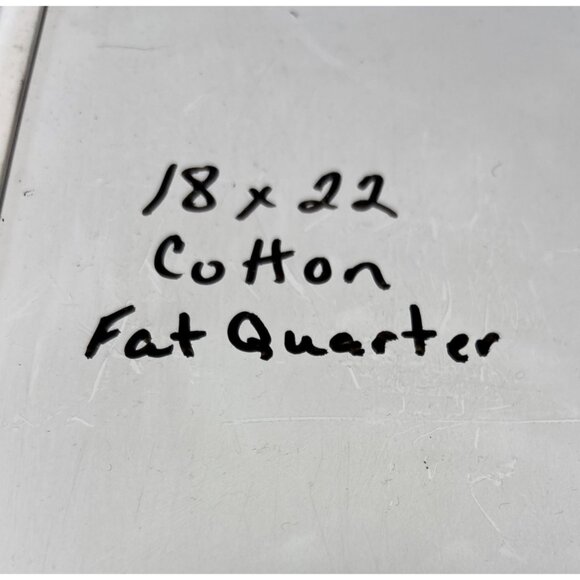 18 x 22
Cotton
Fat Quarter